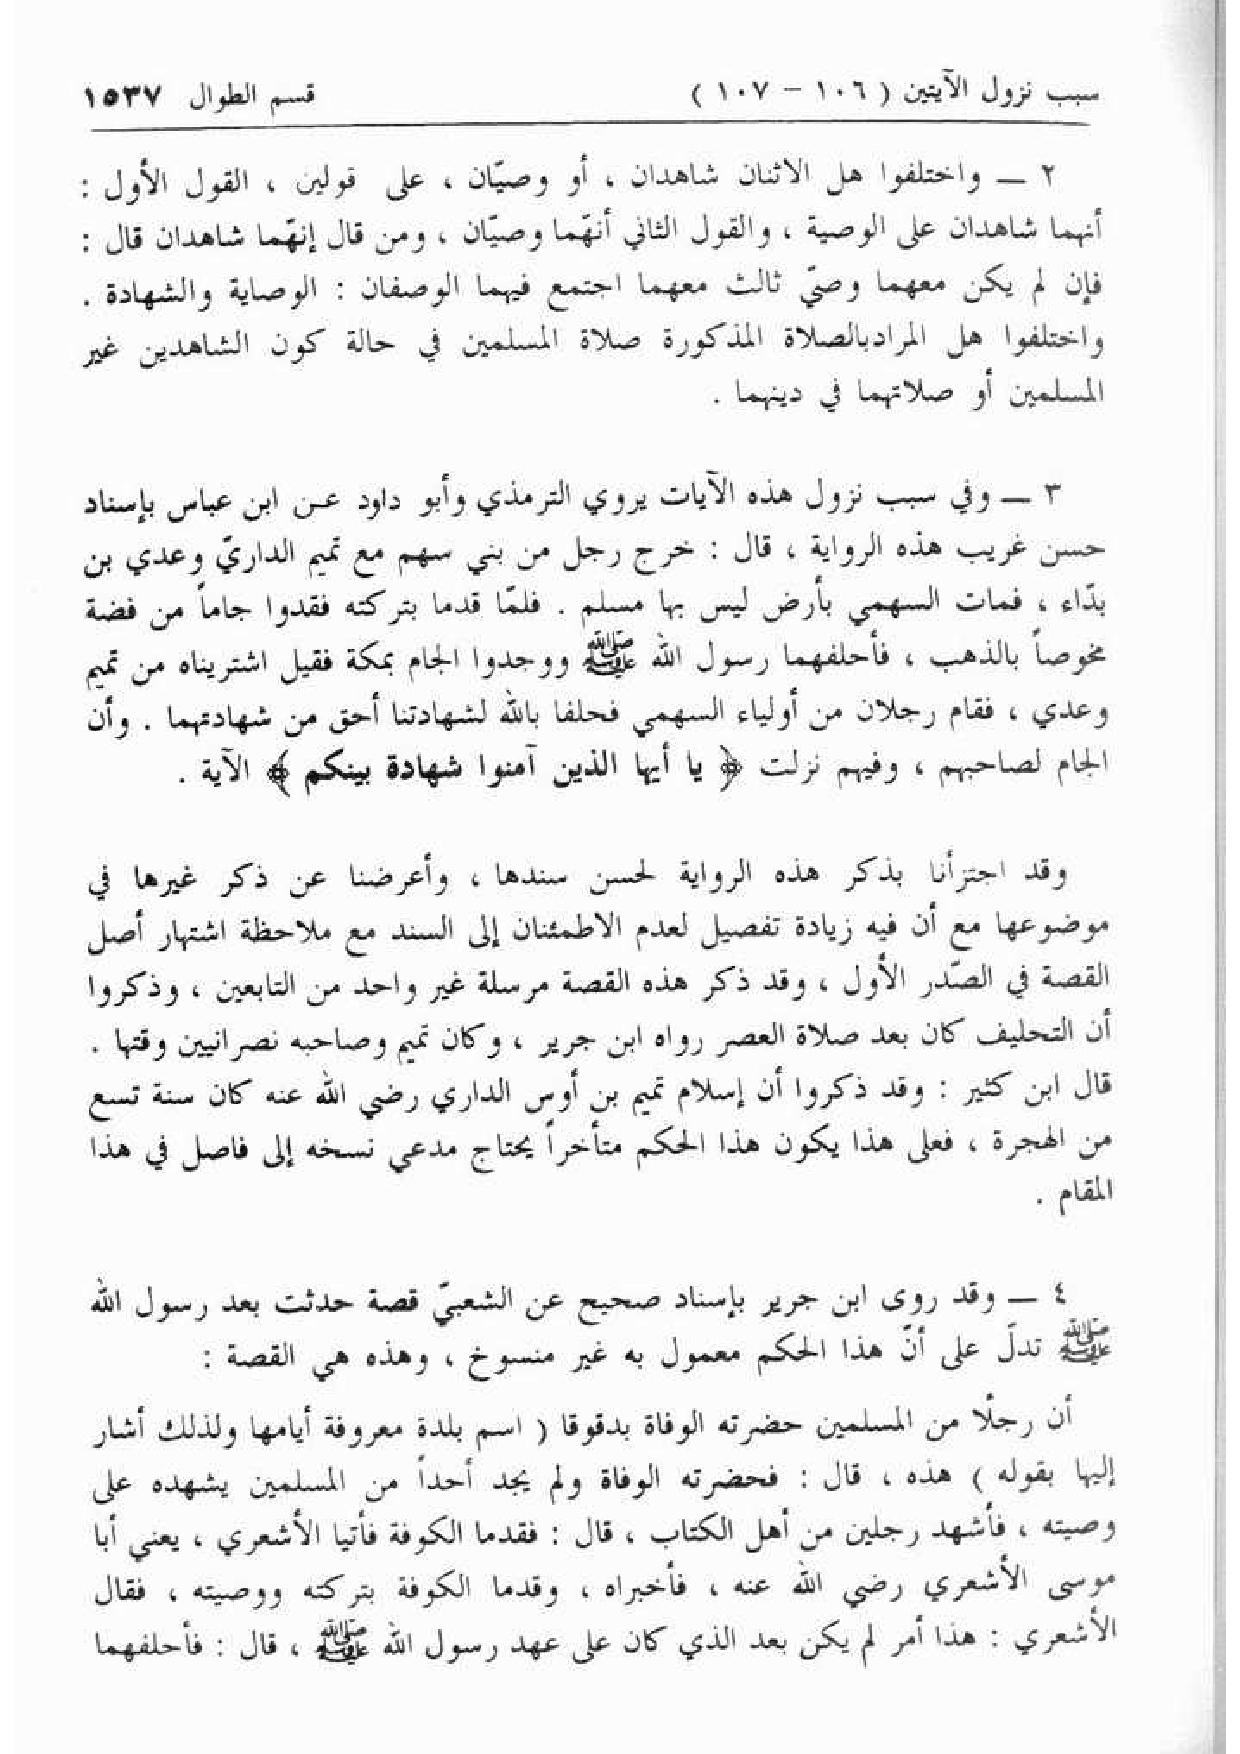 سبب نزول الآيتين ( ١٠٦ – ١٠٧ )
قسم الطوال ١٥٣٧
٢ ـ واختلفوا هل الاثنان شاهدان ، أو وصيّان ، على قولين ، القول الأول :
أنهما شاهدان على الوصية ، والقول الثاني أنهّما وصيّان ، ومن قال إنهّما شاهدان قال :
فإن لم يكن معهما وصيّ ثالث معهما اجتمع فيهما الوصفان : الوصاية والشهادة .
واختلفوا هل المرادبالصلاة المذكورة صلاة المسلمين في حالة كون الشاهدين غير
المسلمين أو صلاتهما في دينهما .
٣ ـ وفي سبب نزول هذه الآيات يروي الترمذي وأبو داود عن ابن عباس بإسناد
حسن غريب هذه الرواية ، قال : خرج رجل من بني سهم مع تميم الداريّ وعدي بن
بدّاء ، فمات السهمي بأرض ليس بها مسلم . فلمّا قدما بتركته فقدوا جاماً من فضة
مخوصاً بالذهب ، فأحلفهما رسول الله ﷺ ووجدوا الجام بمكة فقيل اشتريناه من تميم
وعدي ، فقام رجلان من أولياء السهمي فحلفا بالله لشهادتنا أحق من شهادتهما . وأن
الجام لصاحبهم ، وفيهم نزلت ﴿ يا أيها الذين آمنوا شهادة بينكم ﴾ الآية .
وقد اجتزأنا بذكر هذه الرواية لحسن سندها ، وأعرضنا عن ذكر غيرها في
موضوعها مع أن فيه زيادة تفصيل لعدم الاطمئنان إلى السند مع ملاحظة اشتهار أصل
القصة في الصّدر الأول ، وقد ذكر هذه القصة مرسلة غير واحد من التابعين ، وذكروا
أن التحليف كان بعد صلاة العصر رواه ابن جرير ، وكان تميم وصاحبه نصرانيين وقتها .
قال ابن كثير : وقد ذكروا أن إسلام تميم بن أوس الداري رضي الله عنه كان سنة تسع
من الهجرة ، فعلى هذا يكون هذا الحكم متأخراً يحتاج مدعي نسخه إلى فاصل في هذا
المقام .
٤ ـ وقد روى ابن جرير بإسناد صحيح عن الشعبيّ قصة حدثت بعد رسول الله
ﷺ تدلّ على أنّ هذا الحكم معمول به غير منسوخ ، وهذه هي القصة :
أن رجلًا من المسلمين حضرته الوفاة بدقوقا ( اسم بلدة معروفة أيامها ولذلك أشار
إليها بقوله ) هذه ، قال : فحضرته الوفاة ولم يجد أحداً من المسلمين يشهده على
وصيته ، فأشهد رجلين من أهل الكتاب ، قال : فقدما الكوفة فأتيا الأشعري ، يعني أبا
موسى الأشعري رضي الله عنه ، فأخبراه ، وقدما الكوفة بتركته ووصيته ، فقال
الأشعري : هذا أمر لم يكن بعد الذي كان على عهد رسول الله ﷺ ، قال : فأحلفهما